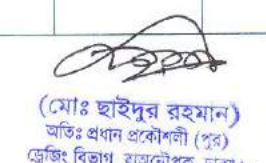 (মোঃ ছাইদুর রহমান)
অতিঃ প্রধান প্রকৌশলী (পুর)
ড্রেজিং বিভাগ